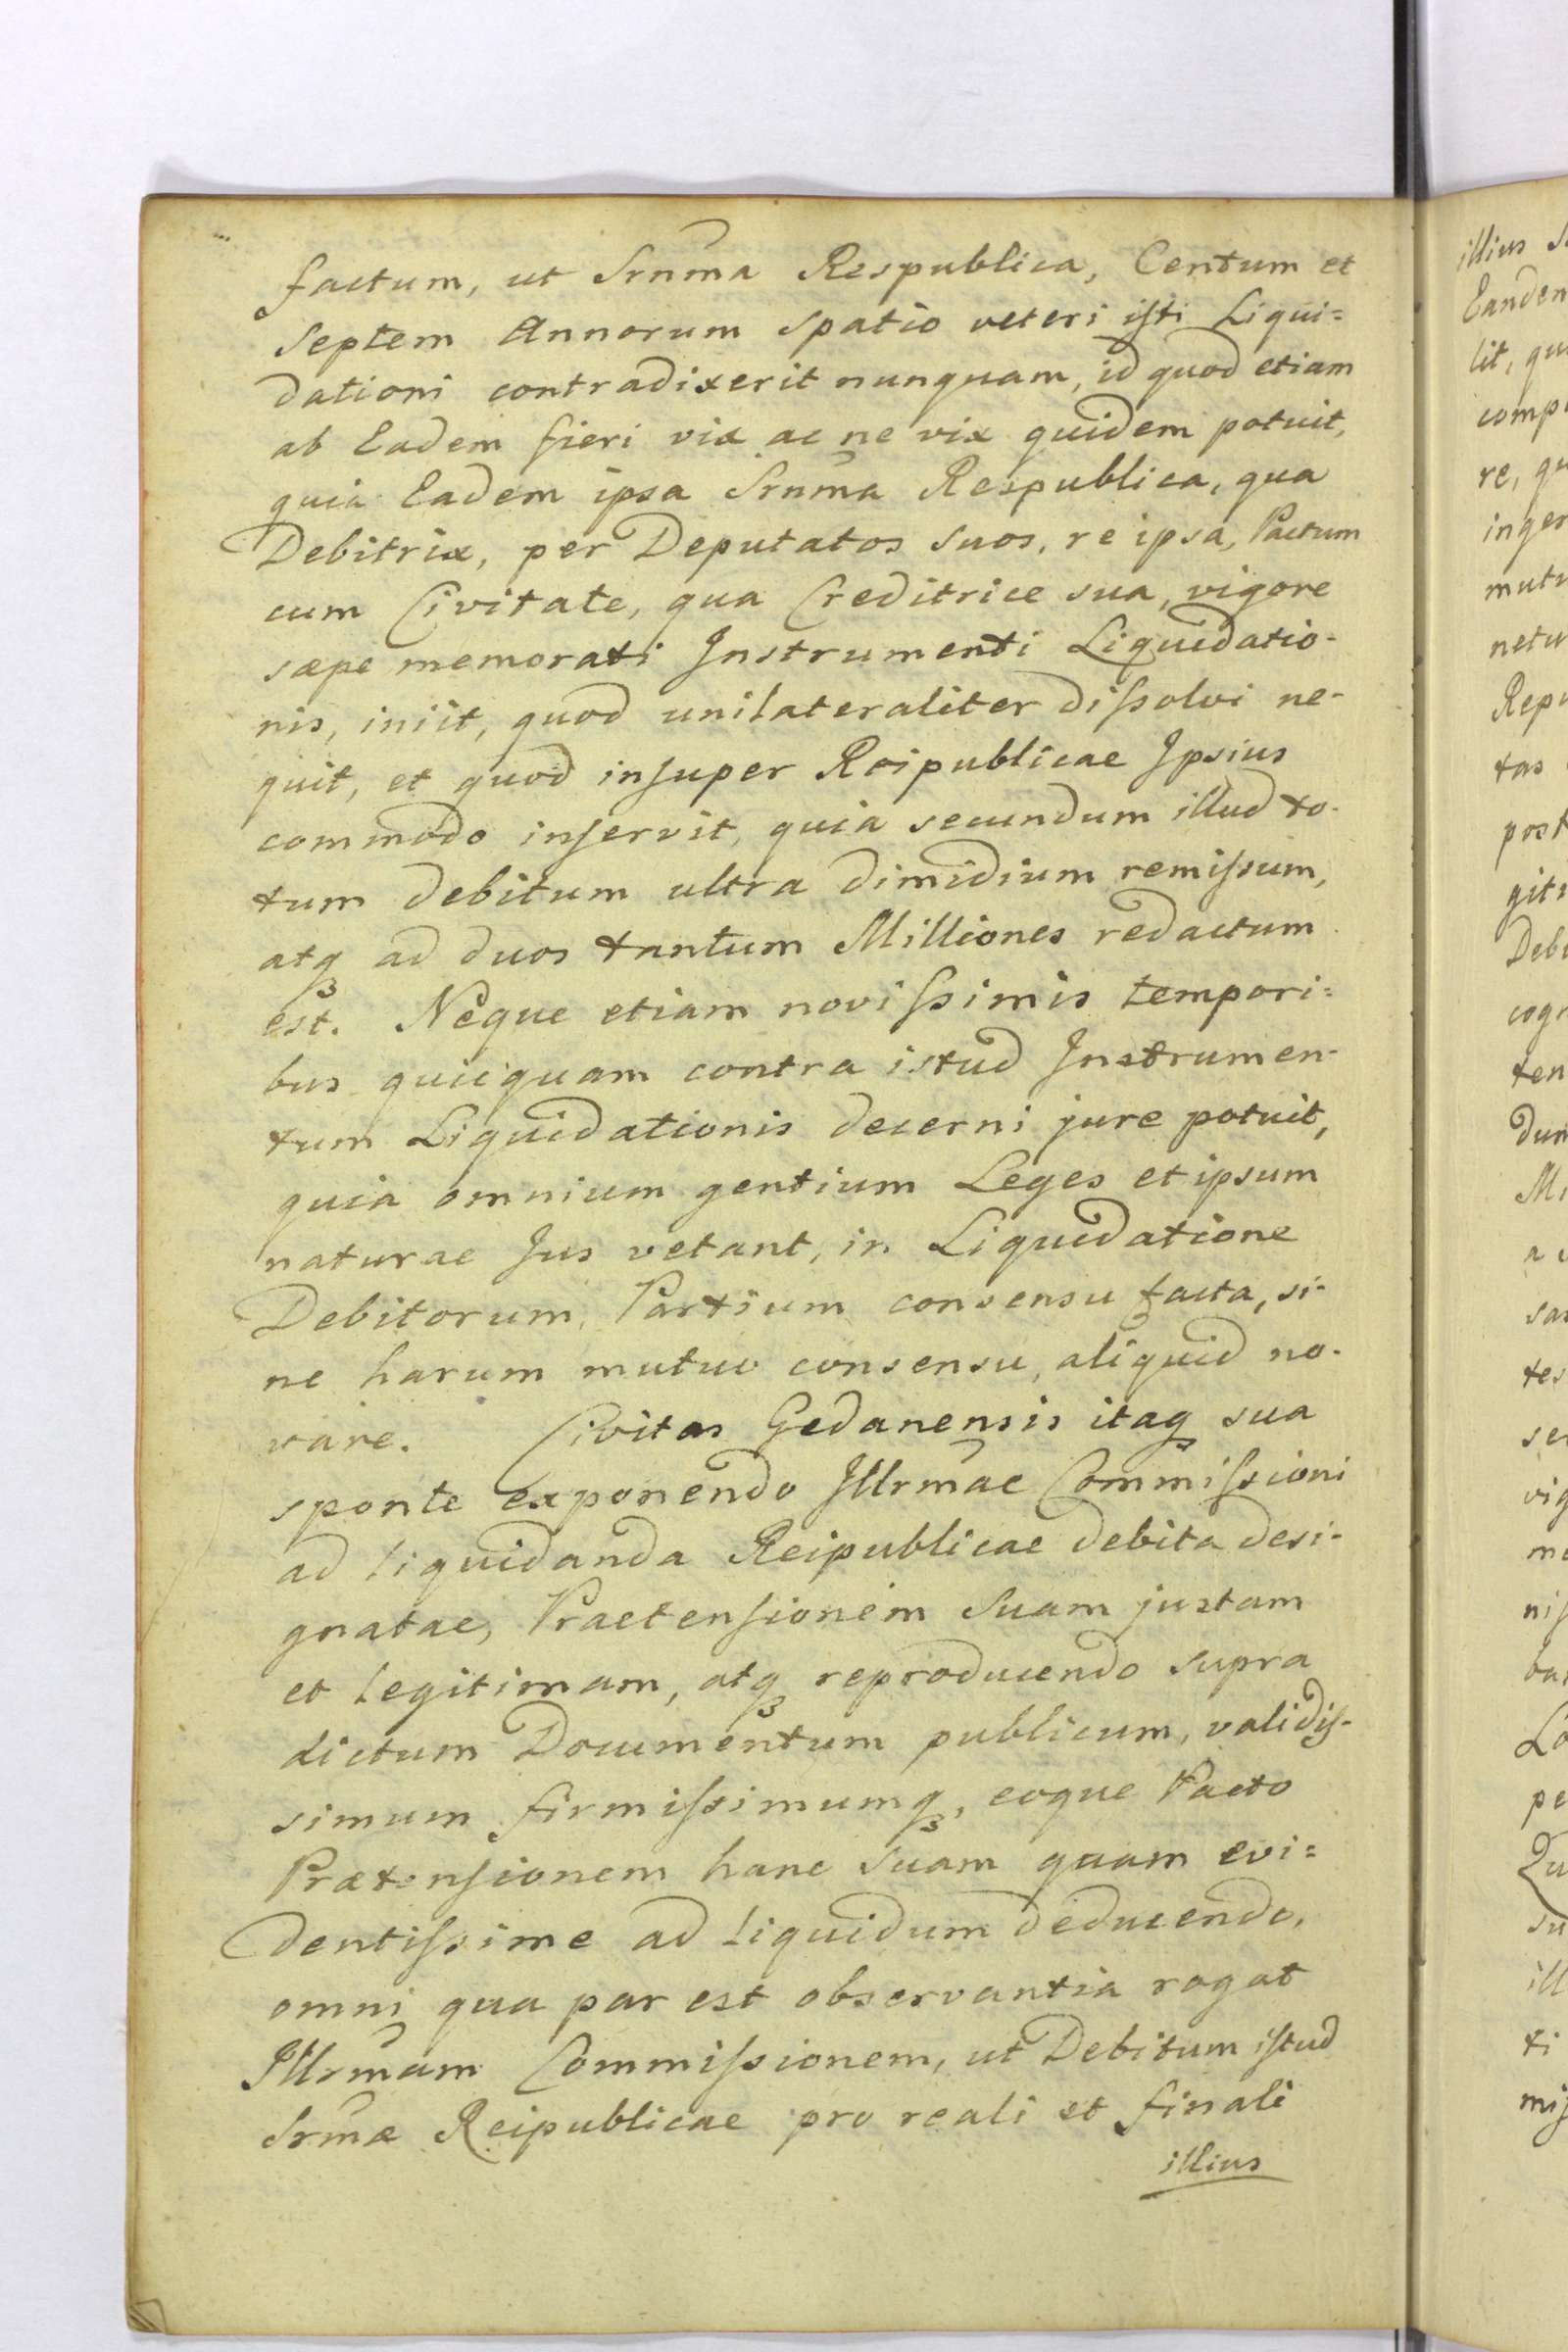 factum, ut Srnma Respublica, Centum et
septem Annorum spatio veteri isti Liqui=
dationi contradixerit nunquam, id quod etiam
ab Eadem fieri vix ac ne vix quidem potuit,
quia Eadem ipsa Srnma Respublica, qua
Debitrix, per Deputatos suos, re ipsa, Pactum
cum Civitate, qua Creditrice sua, vigore
sæpe memorati Instrumenti Liquidatio-
nis, iniit, quod unilateraliter dissolvi ne-
quit, et quod insuper Reipublicae Ipsius
commodo inservit, quia secundum illud to-
tum debitum ultra dimidium remissum,
atq3 ad duos tantum Milliones redactum
est. Neque etiam novissimis tempori=
bus quicquam contra istud Instrumen-
tum Liquidationis decerni jure potuit,
quia omnium gentium Leges et ipsum
naturae Jus vetant, in Liquidatione
Debitorum, Partium consensu facta, si-
ne harum mutuo consensu, aliquid no-
vare. Civitas Gedanensis itaq3 sua
sponte exponendo Illrmae Commissioni
ad liquidanda Reipublicae debita desi-
gnatae, Praetensionem Suam justam
et legitimam, atq3 reproducendo supra
dictum Documentum publicum, validis-
simum firmissimumq3, eoque Pacto
Prætensionem hanc Suam quam evi=
dentissime ad liquidum deducendo,
omni qua par est observantia rogat
Illrmam Commissionem, ut Debitum istud
Srmæ Reipublicae pro reali et finali
illius
illius
Eandem
lit, qu
comp
re, qu
inger
mutu
netu
Repu
tas
post
gitu
Deb
cogn
ten
dum
tes
vig
Lo
pe
Qu
su
ill
ti
mis